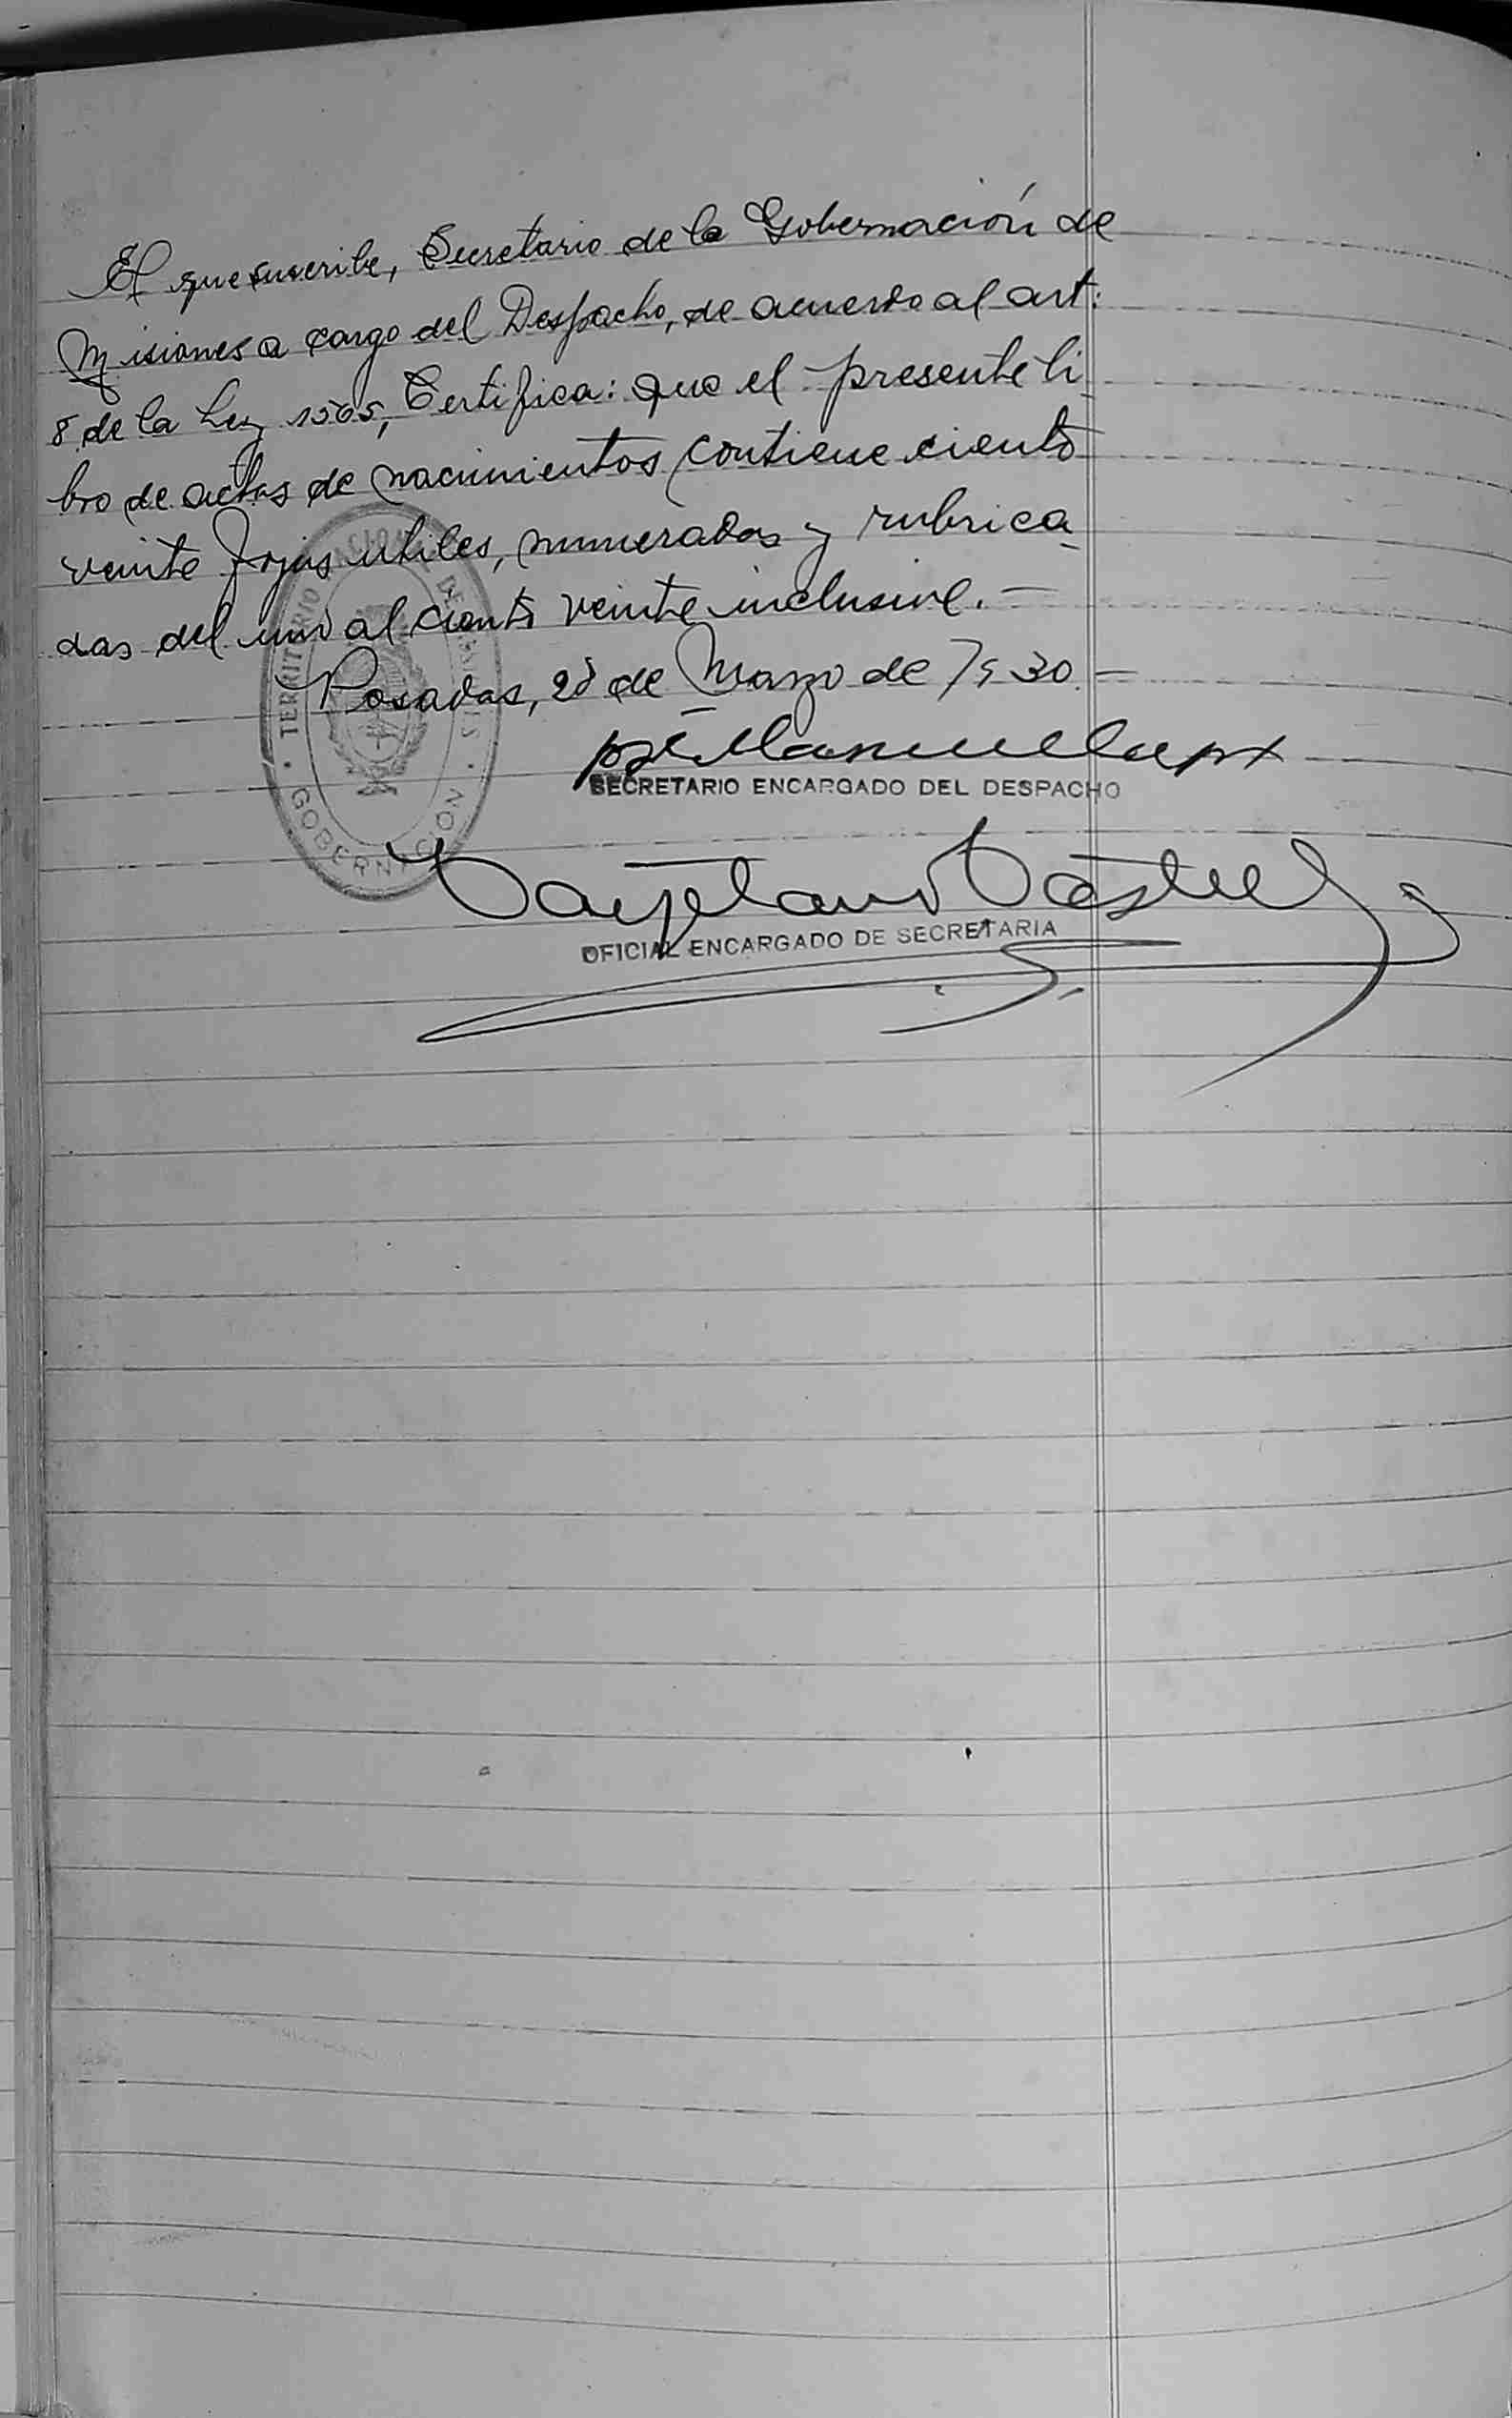 El que suscribe, Secretario de la Gobernación de
Misiones a cargo del Despacho, de acuerdo al art:
8 de la Ley 1565, Certifica: que el presente li-
bro de actas de nacimientos contiene ciento
veinte fojas utiles, numeradas y rubrica-
das del uno al ciento veinte inclusive.—
Posadas, de Marzo de 1930.—
SECRETARIO ENCARGADO DEL DESPACHO
Cayetano
OFICIAL ENCARGADO DE SECRETARIA
TERRITORIO NACIONAL DE MISIONES
GOBERNACION